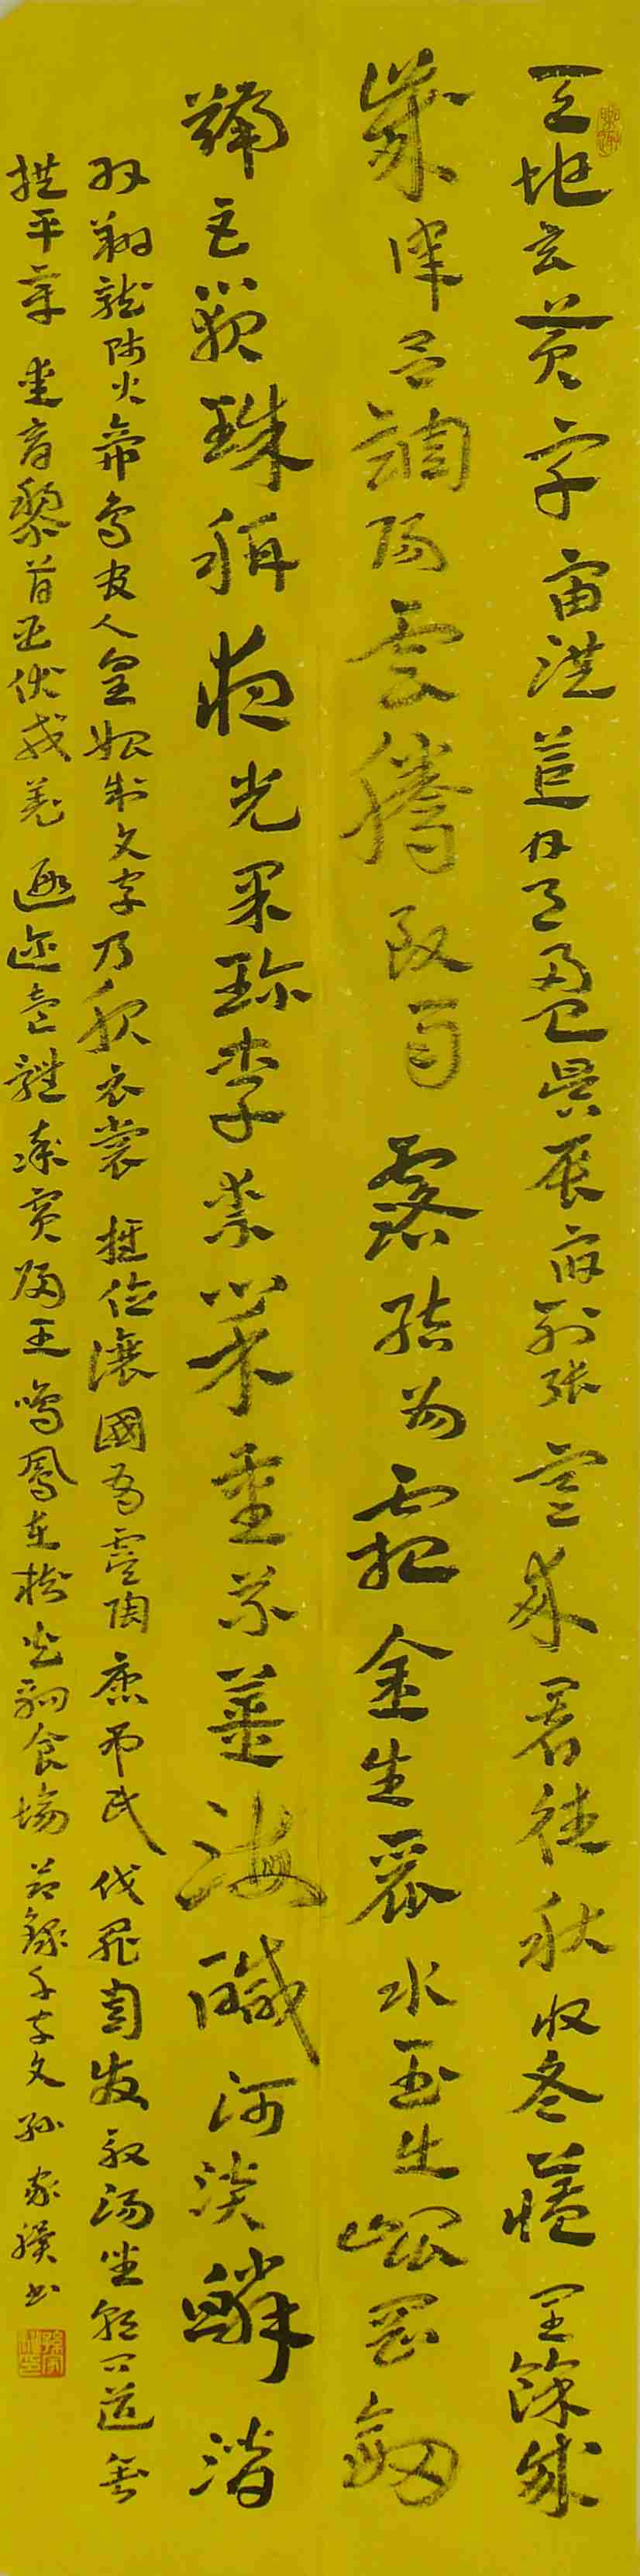 天地玄黄宇宙洪荒日月盈昃辰宿列张寒来暑往秋收冬藏闰餘成
歲律吕調陽雲騰致雨露結為霜金生麗水玉出崐岡劒
號巨闕珠稱夜光果珍李柰菜重芥薑海鹹河淡鱗潛
羽翔龍師火帝鳥官人皇始制文字乃服衣裳推位讓國有虞陶唐吊民伐罪周发殷湯坐朝问道垂
拱平章爱育黎首臣伏戎羌遐迩壹體率賓歸王鳴鳳在樹白駒食場节錄千字文孙家骥书